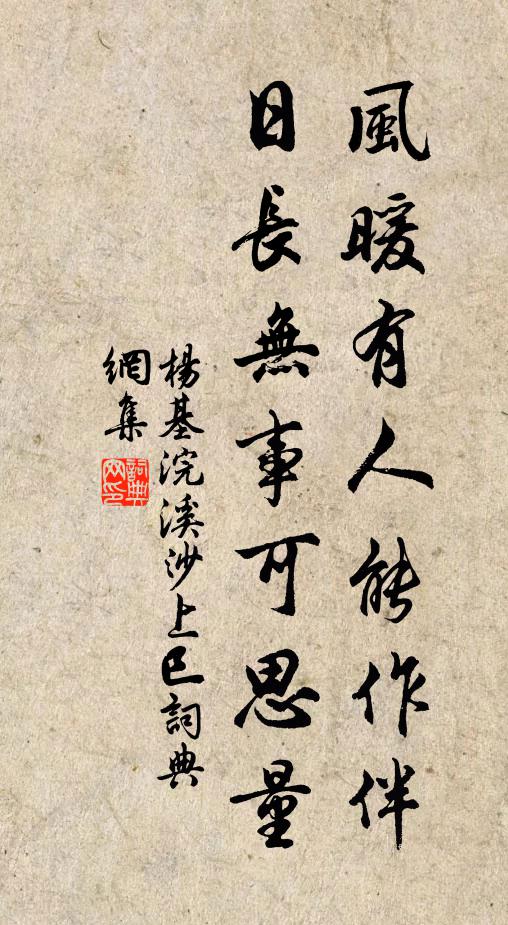 風暖有人能作伴
日長無事可思量
楊基浣溪沙上巳詞典
網集
詞典網印